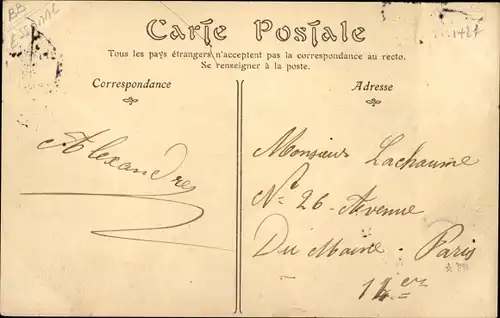 Carte Postale
Tous les pays étrangers n'acceptent pas la correspondance au recto.
Se renseigner à la poste.
Correspondance
Adresse
Alexandre
Monsieur Lachaume
No 26 Avenue
Du Maine. Paris
14er